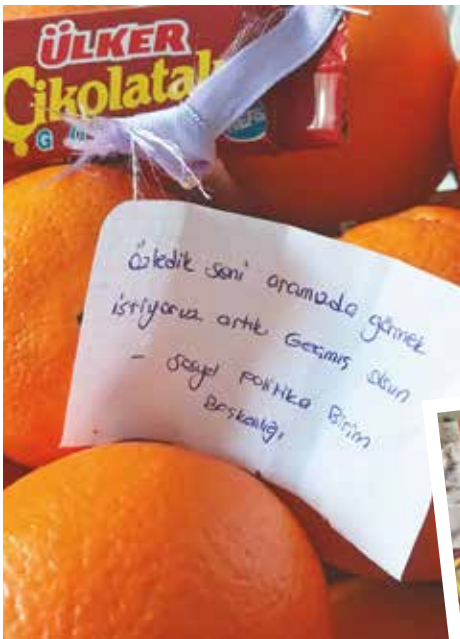 ÜLKER
Çikolatalı
G
özledik seni aramızda görmek
istiyoruz artık Geçmiş olsun
- Sosyal Politika Birim
Başkanlığı